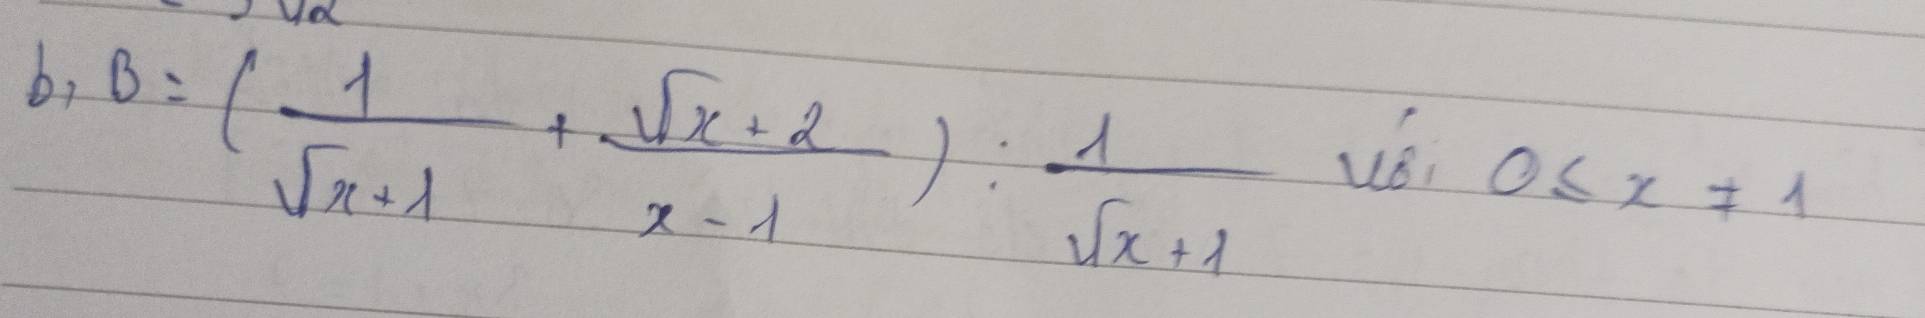 b, B = ( 1/(√x+1) + (√x+2)/(x-1) ) : 1/(√x+1) với 0 ≤ x ≠ 1